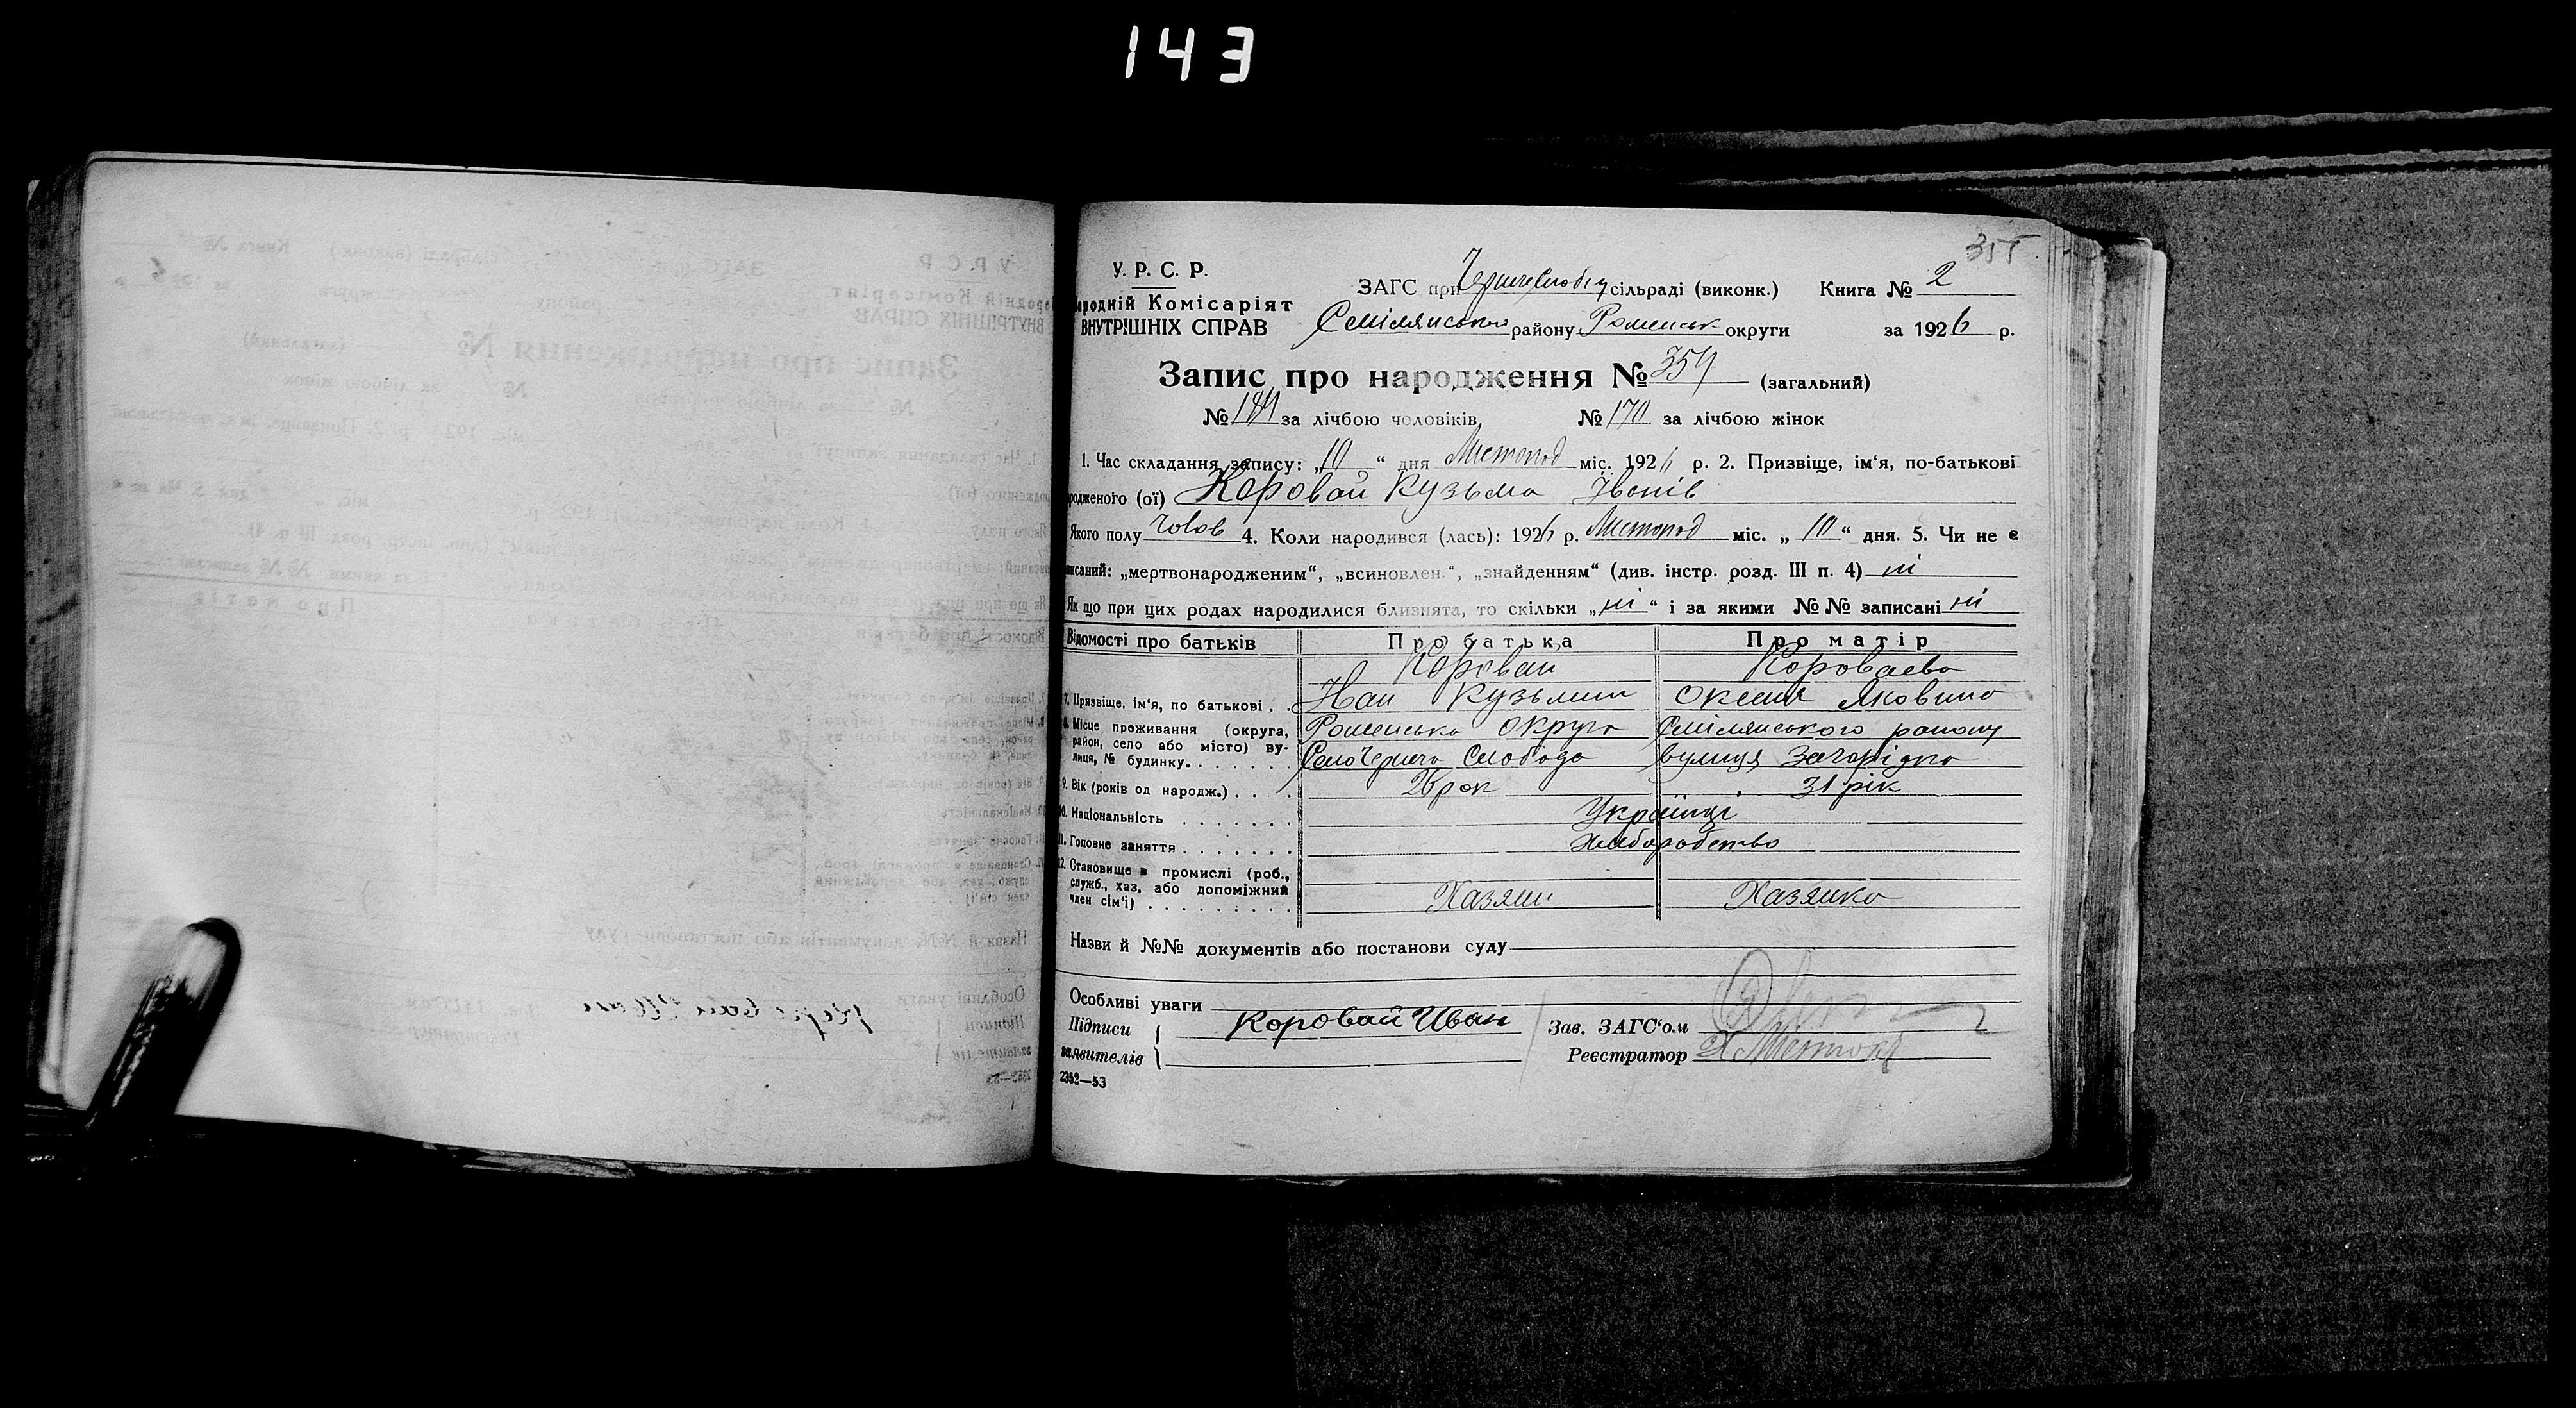 143
355
У. Р. С. Р.
ЗАГС при Чернечеслобід сільраді (виконк.) Книга № 2
ародній Комісаріят
ВНУТРІШНІХ СПРАВ Смілянського району Роменськ округи за 1926 р.
Запис про народження № 354 (загальний)
№ 184 за лічбою чоловіків, № 170 за лічбою жінок
1. Час складання запису: „10“ дня Листопад міс. 1926 р. 2. Призвіще, ім‘я, по-батькові
родженого (ої) Коровай Кузьма Іванів
Якого полу Чолов 4. Коли народився (лась): 1926 р. Листопад міс. „10“ дня. 5. Чи не є
писаний: „мертвонародженим“, „всиновлен.“, „знайденням“ (див. інстр. розд. III п. 4) ні
Як що при цих родах народилися близнята, то скільки „ні“ і за якими №№ записані ні
Відомості про батьків Про батька Про матір
Коровай Короваева
7. Призвіще, ім‘я, по батькові . . Іван Кузьмич Оксана Яковина
8. Місце проживання (округа, Роменська округа Смілянського району
район, село або місто) ву-
лиця, № будинку. . . . . . . Село Чернеча Слобода вулиця Загорідна
9. Вік (років од народж.) . . . . 26 рок 31 рік
10. Національність . . . . . . . Українці
11. Головне заняття . . . . . . . Хліборобство
12. Становище в промислі (роб.,
служб., хаз. або допоміжний
член сім‘ї) . . . . . . . . . Хазяин Хазяйка
Назви й №№ документів або постанови суду
Особливі уваги
Підписи Коровай Иван Зав. ЗАГС‘ом
заявителів Реєстратор
2352—53